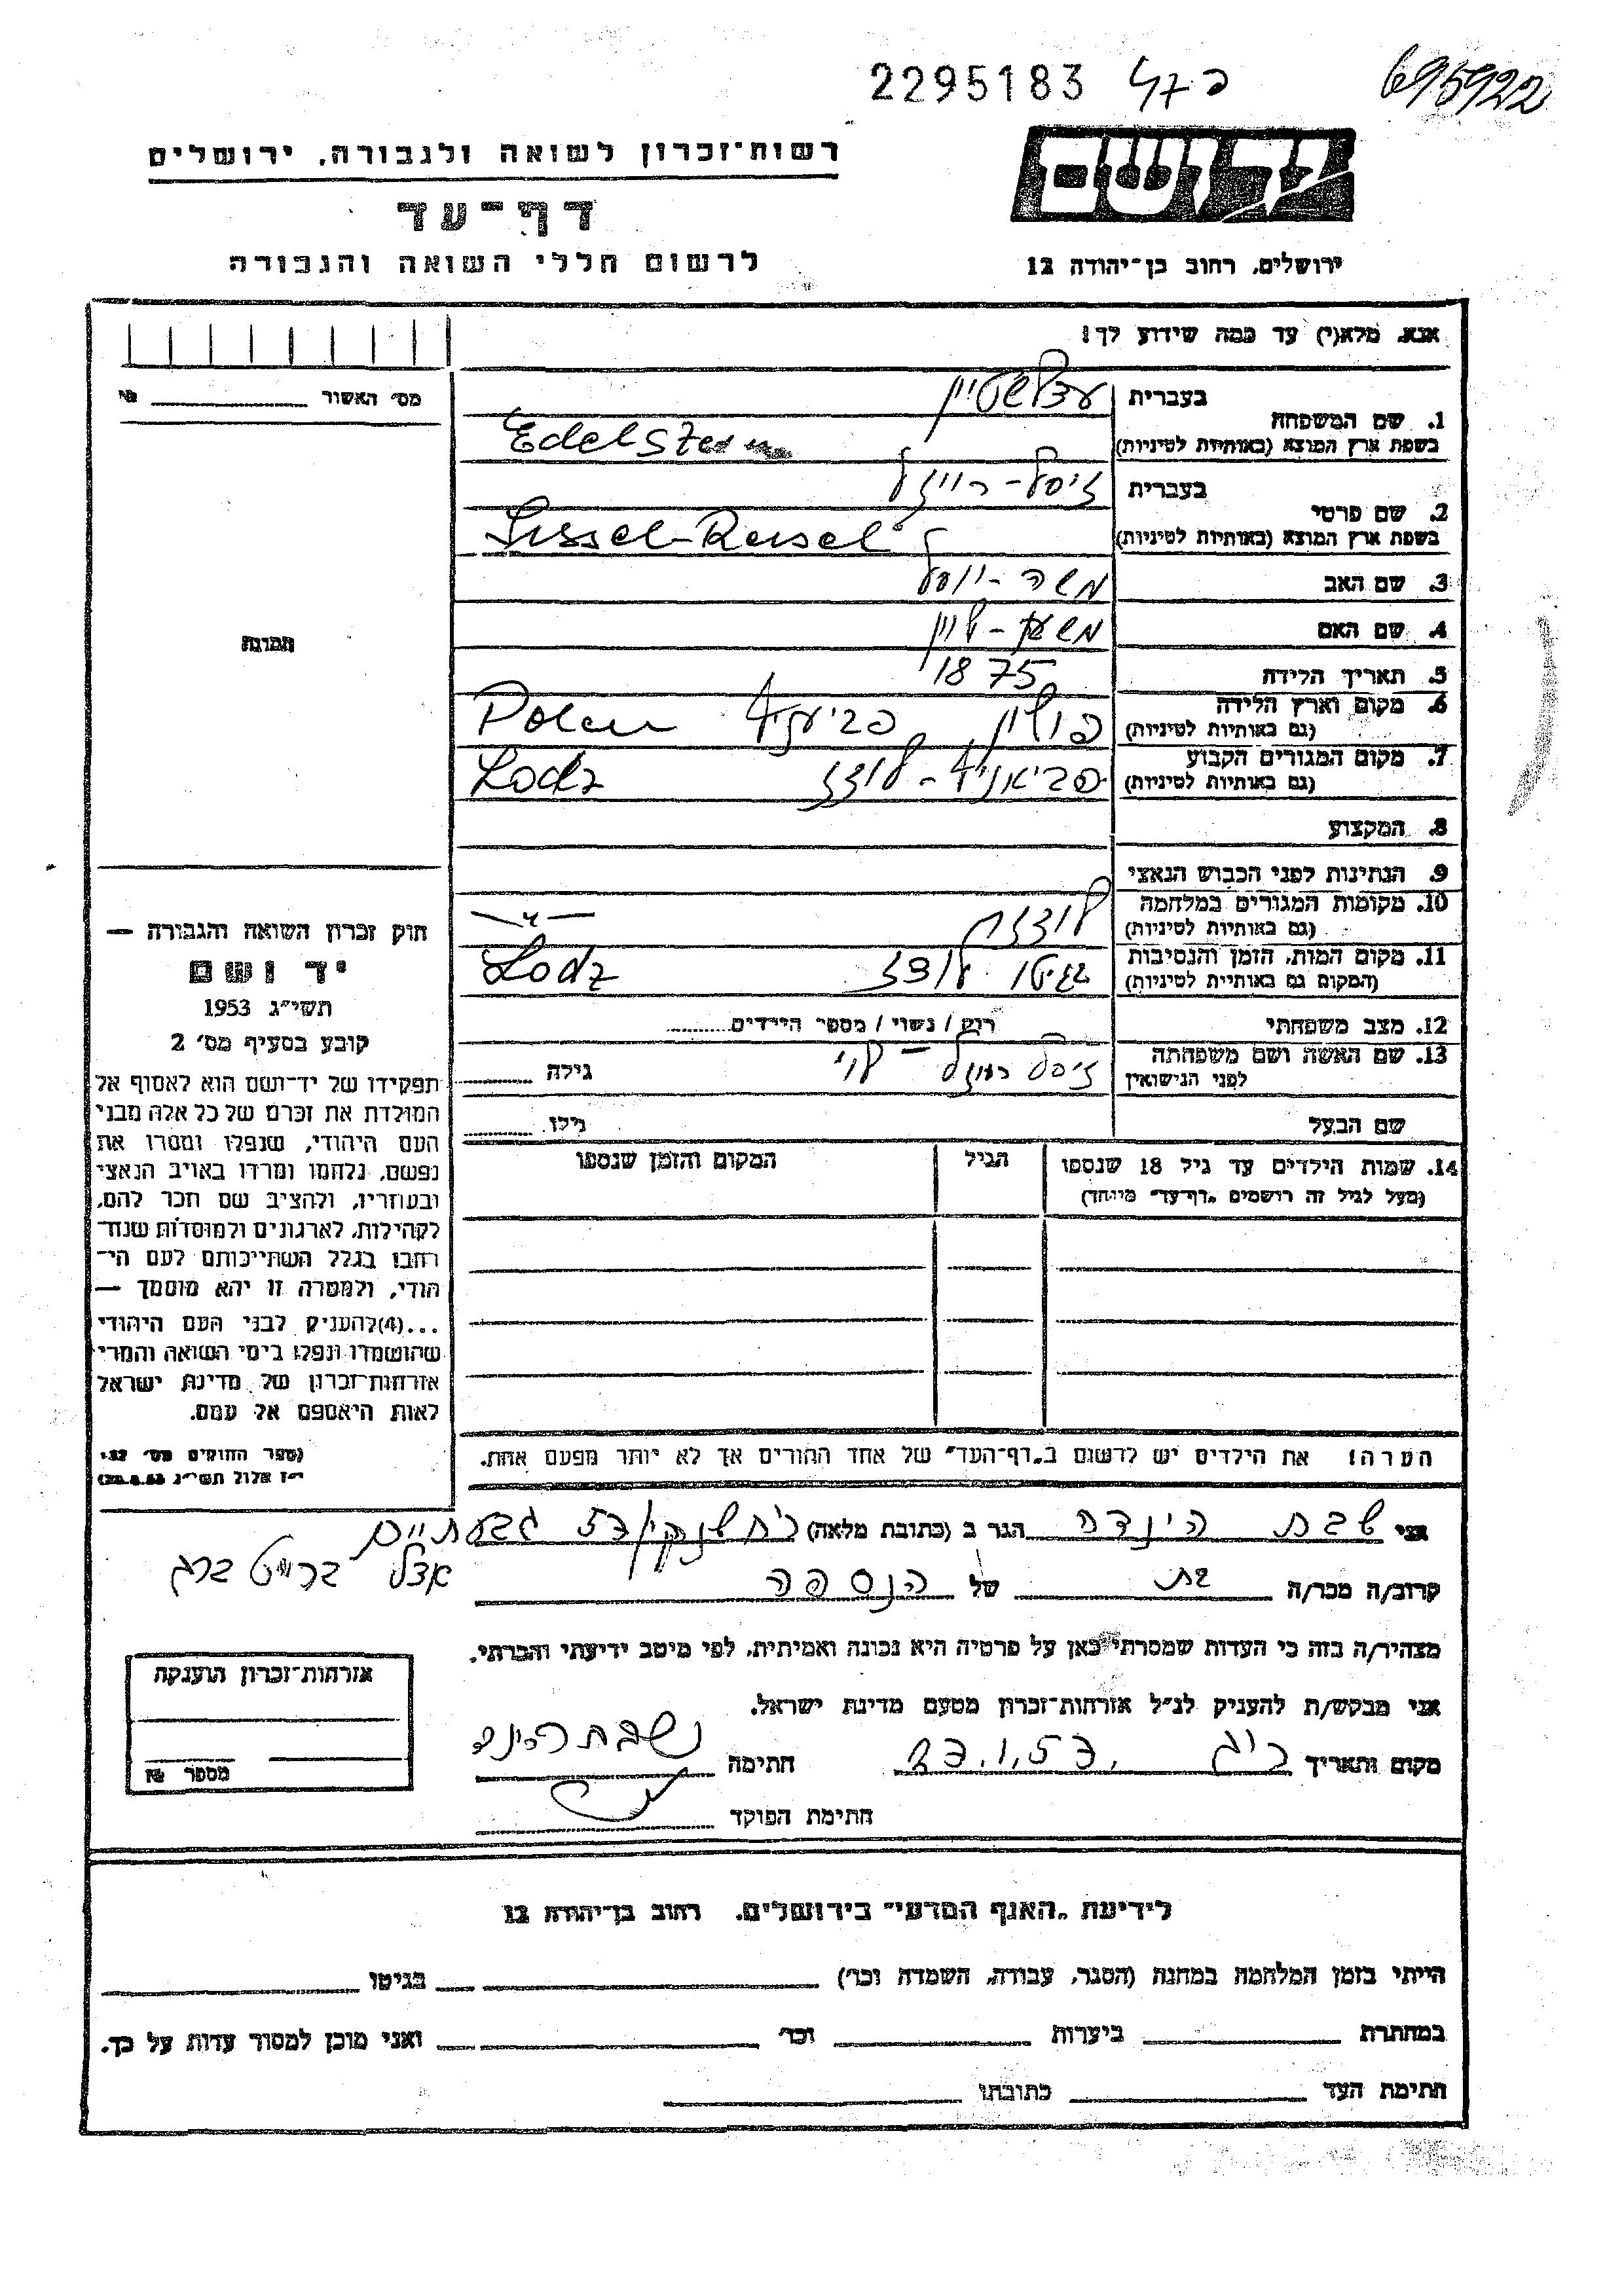 2295183
695922
רשות־זכרון לשואה ולגבורה, ירושלים
יד ושם
דף־עד
לרשום חללי השואה והגבורה
ירושלים, רחוב בן־יהודה 12
אנא, מלא(י) עד כמה שידוע לך!
מס׳ האשור №
1. שם המשפחה בעברית עדלשטיין
בשפת ארץ המוצא (באותיות לטיניות) Edelstein
2. שם פרטי בעברית זיסל-רייזל
בשפת ארץ המוצא (באותיות לטיניות) Sissel-Reisel
3. שם האב משה-יוסל
4. שם האם
5. תאריך הלידה 1875
6. מקום וארץ הלידה (גם באותיות לטיניות) פולין Polen
7. מקום המגורים הקבוע (גם באותיות לטיניות) לודז Lodz
8. המקצוע
9. הנתינות לפני הכבוש הנאצי
10. מקומות המגורים במלחמה (גם באותיות לטיניות) —״—
11. מקום המות, הזמן והנסיבות (המקום גם באותיית לטיניות) בגיטו לודז Lodz
12. מצב משפחתי רוק / נשוי / מספר הילדים
13. שם האשה ושם משפחתה לפני הנישואין זיסל רייזל – לוי גילה
שם הבעל גילו
14. שמות הילדים עד גיל 18 שנספו הגיל המקום והזמן שנספו
(מעל לגיל זה רושמים „דף־עד״ מיוחד)
הערה! את הילדים יש לרשום ב„דף־העד״ של אחד ההורים אך לא יותר מפעם אחת.
תמונה
חוק זכרון השואה והגבורה —
יד ושם
תשי״ג 1953
קובע בסעיף מס׳ 2
תפקידו של יד־ושם הוא לאסוף אל
המולדת את זכרם של כל אלה מבני
העם היהודי, שנפלו ומסרו את
נפשם, נלחמו ומרדו באויב הנאצי
ובעוזריו, ולהציב שם וזכר להם,
לקהילות, לארגונים ולמוסדות שנח־
רבו בגלל השתייכותם לעם הי־
הודי, ולמטרה זו יהא מוסמך —
...(4) להעניק לבני העם היהודי
שהושמדו ונפלו בימי השואה והמרי
אזרחות־זכרון של מדינת ישראל
לאות היאספם אל עמם.
(ספר החוקים מס׳ 132,
י״ז אלול תשי״ג 28.8.53)
אני שבת הינדה הגר ב (כתובת מלאה) גבעתיים
אצל ברייטברג
קרוב/ה מכר/ה בת של הנספה
מצהיר/ה בזה כי העדות שמסרתי כאן על פרטיה היא נכונה ואמיתית, לפי מיטב ידיעתי והכרתי.
אני מבקש/ת להעניק לנ״ל אזרחות־זכרון מטעם מדינת ישראל.
מקום ותאריך חתימה
חתימת הפוקד
אזרחות־זכרון הוענקה
מספר №
לידיעת „האגף המדעי״ בירושלים, רחוב בן־יהודה 12
הייתי בזמן המלחמה במחנה (הסגר, עבודה, השמדה וכו׳) בגיטו
במחתרת ביערות וכו׳ ואני מוכן למסור עדות על כך.
חתימת העד כתובתו